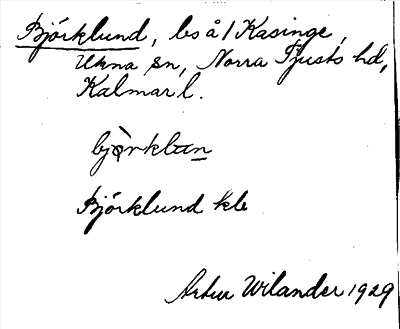 Björklund, bs å/ Kasinge,
Ukna sn, Norra Tjusts hd,
Kalmar l.
bjòrklun
Björklund kle
Artur Wilander 1929